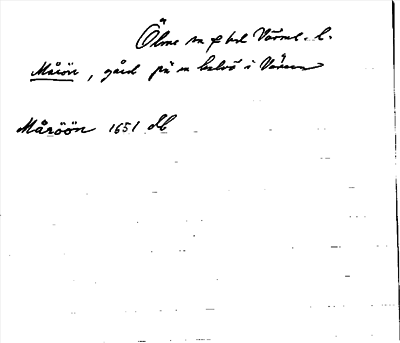 Ölme sn f hd Värml. l.
Måröň, gård på en halvö i Vänern
Måröön 1651 db